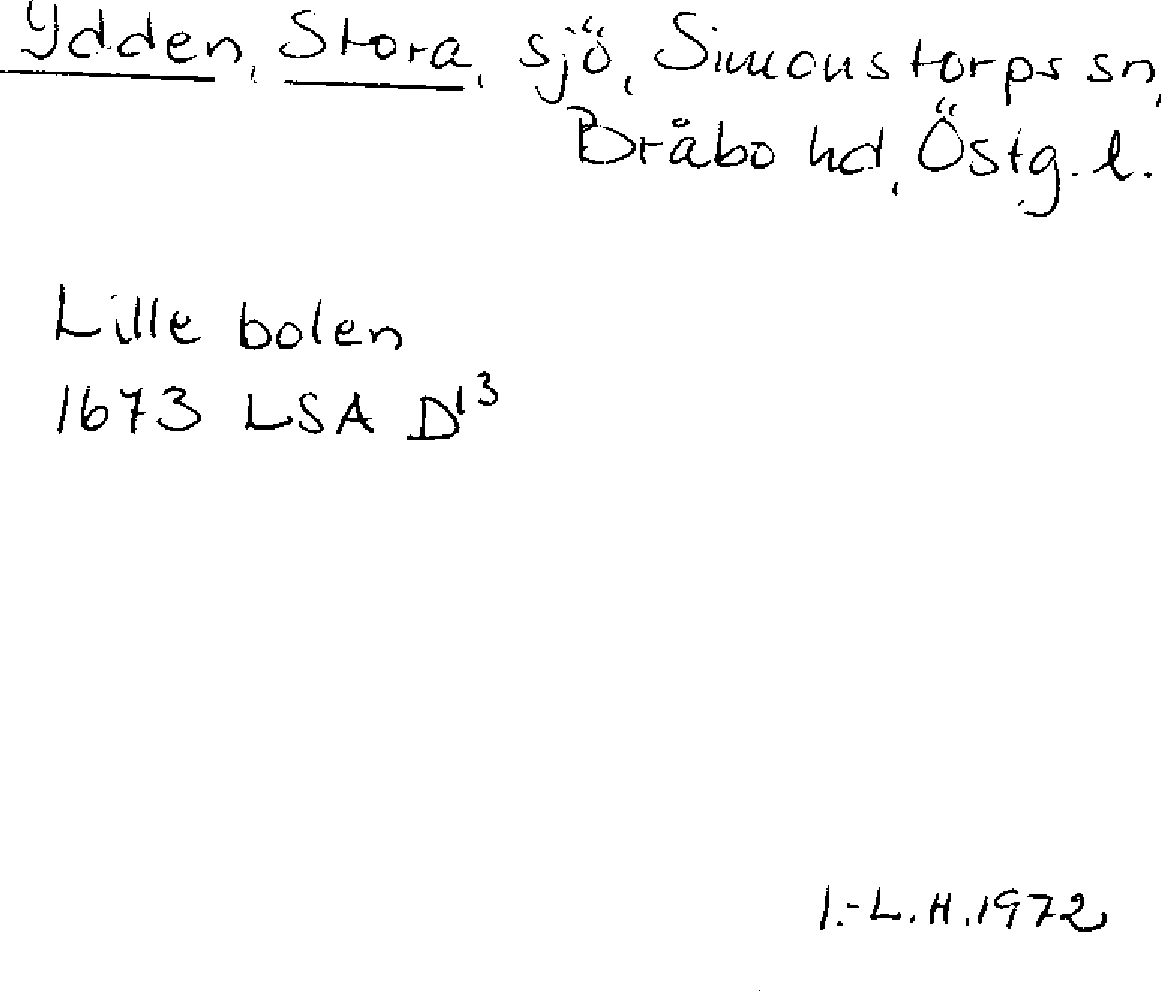 Ydden, Stora, sjö, Simonstorps sn,
Bråbo hd, Östg. l.
Lille bolen
1673 LSA D¹³
I.-L.H.1972